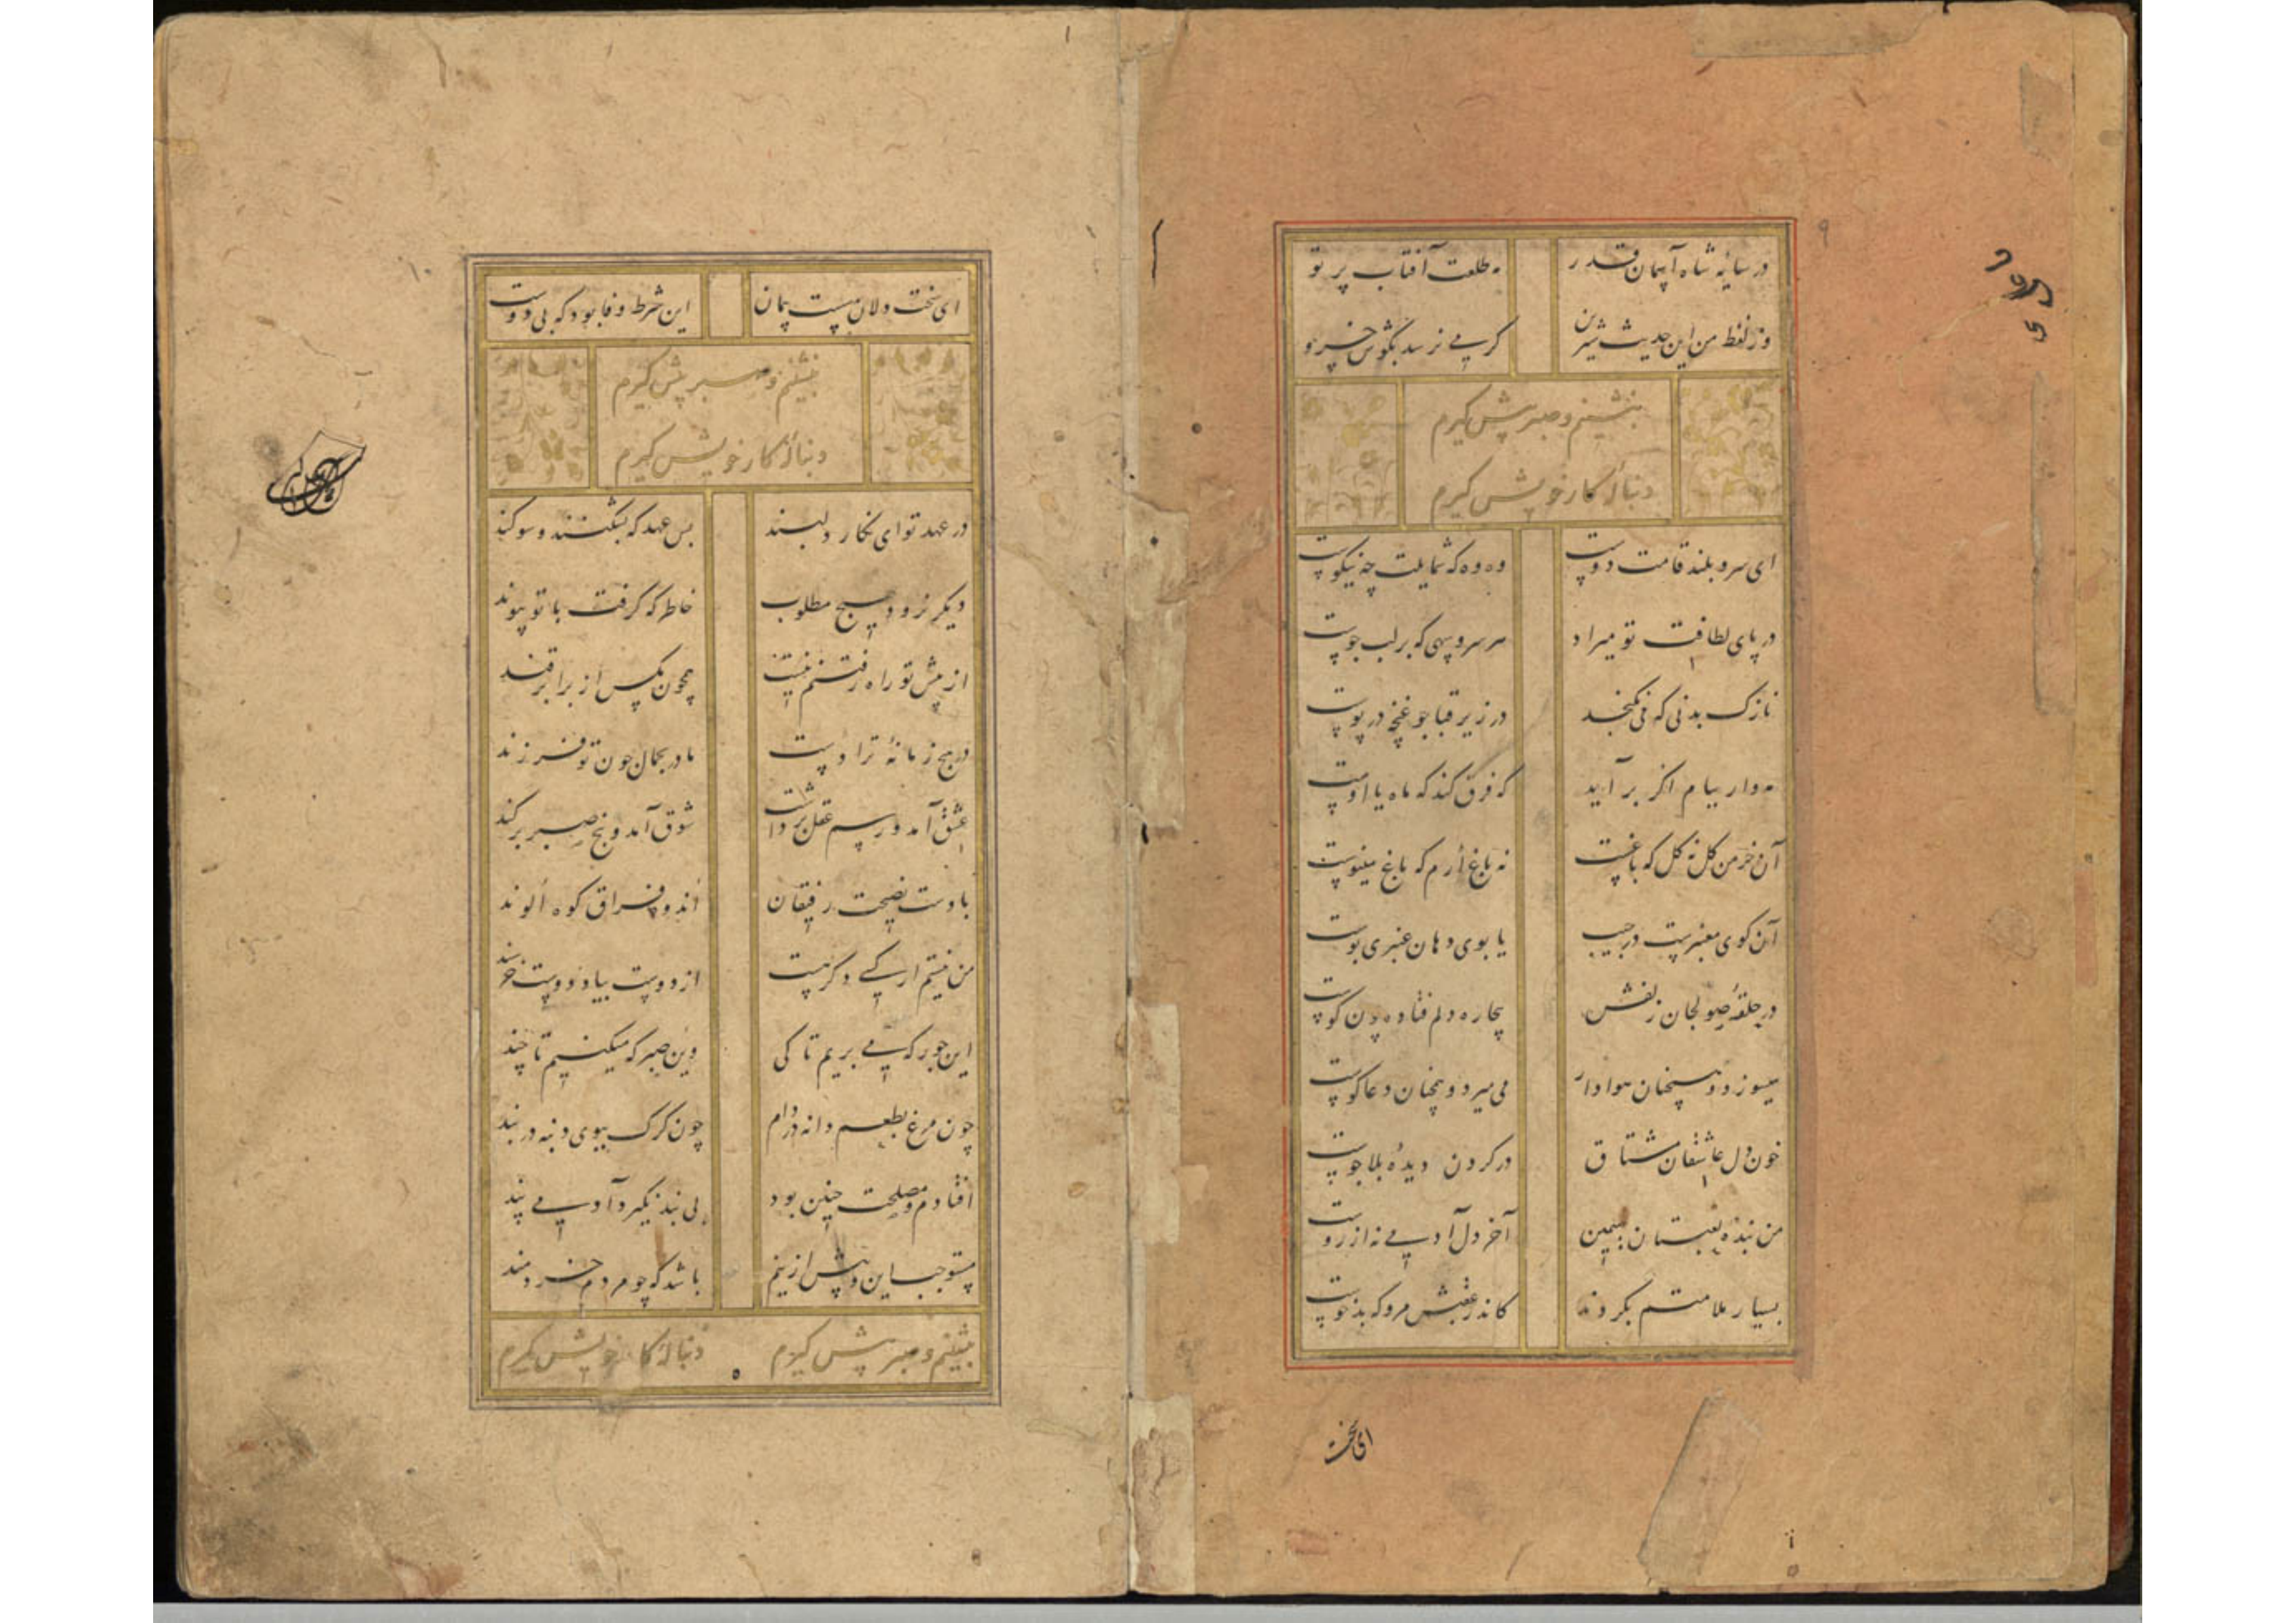 در سایه شاه آسمان قدر مه طلعت آفتاب پرتو
وز لفظ من این حدیث شیرین گر می نرسد بگوش خسرو
بنشینم و صبر پیش گیرم
دنباله کار خویش گیرم
ای سرو بلند قامت دوست وه وه که شمایلت چه نیکوست
در پای لطافت تو میراد هر سرو سهی که بر لب جوست
نازک بدنی که می نگنجد در زیر قبا چو غنچه در پوست
مه وار ببام اگر بر آید که فرق کند که ماه یا اوست
آن خرمن گل نه گل که باغست نه باغ ارم که باغ مینوست
آن گوی معنبرست در جیب یا بوی دهان عنبری بوست
در حلقه صولجان زلفش بیچاره دلم فتاده چون گوست
میسوزد و همچنان هوادار می میرد و همچنان دعاگوست
خون دل عاشقان مشتاق در گردن دیده بلاجوست
من بنده لعبتان سیمین آخر دل آدمی نه از روست
بسیار ملامتم بکردند کاندر عقبش مرو که بدخوست
ای سخت
ای سخت دلان سست پیمان این شرط وفا بود که بی دوست
بنشینم و صبر پیش گیرم
دنباله کار خویش گیرم
در عهد تو ای نگار دلبند بس عهد که بشکنند و سوگند
دیگر نرود بهیچ مطلوب خاطر که گرفت با تو پیوند
از پیش تو راه رفتنم نیست همچون مگس از برابر قند
در هیچ زمانه ترا دست مادر بجمال چون تو فرزند
عشق آمد و رسم عقل برداشت شوق آمد و بیخ صبر برکند
بادست نصیحت رفیقان اندوه فراق کوه الوند
من نیستم ار کسی دگر هست از دوست بیاد دوست خرسند
این جور که می بریم تا کی وین صبر که میکنیم تا چند
چون مرغ بطعم دانه در دام چون گرگ ببوی دنبه در بند
افتادم و مصلحت چنین بود بی بند نگیرد آدمی پند
مستوجب این و بیش ازینم باشد که چو مردم خردمند
بنشینم و صبر پیش گیرم دنباله کار خویش گیرم